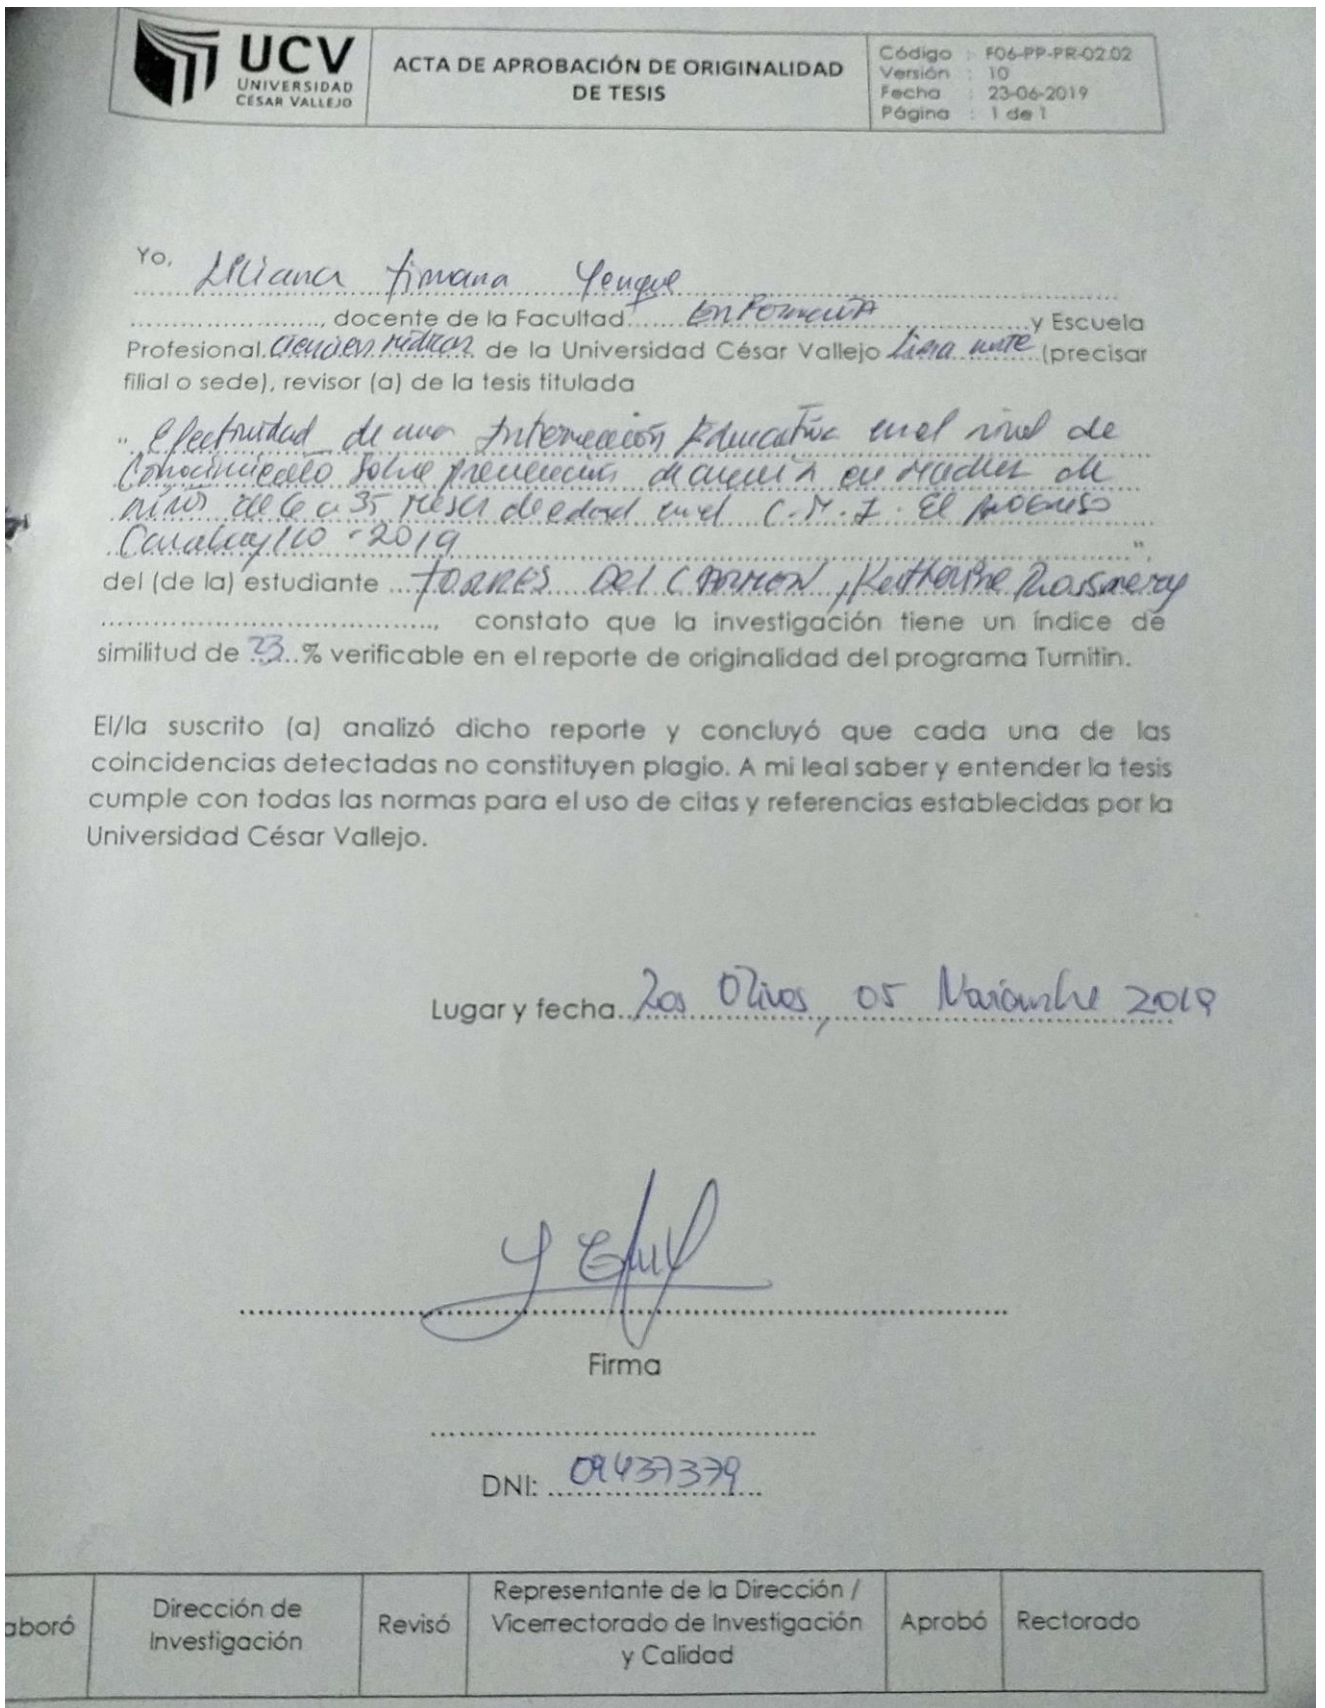 UCV
UNIVERSIDAD
CÉSAR VALLEJO
ACTA DE APROBACIÓN DE ORIGINALIDAD
DE TESIS
Código : F06-PP-PR-02.02
Versión : 10
Fecha : 23-06-2019
Página : 1 de 1
Yo,
Liliana Timana Yenque
....................., docente de la Facultad Enfermería y Escuela
Profesional Ciencias Médicas de la Universidad César Vallejo Lima norte (precisar
filial o sede), revisor (a) de la tesis titulada
" Efectividad de una Intervención Educativa en el nivel de
Conocimiento Sobre prevención de anemia en madres de
niños de 6 a 35 meses de edad en el C.M.I. El progreso
Carabayllo - 2019
",
del (de la) estudiante TORRES DEL CARMEN, Katherine Rossmery
....................................., constato que la investigación tiene un índice de
similitud de 23 % verificable en el reporte de originalidad del programa Turnitin.
El/la suscrito (a) analizó dicho reporte y concluyó que cada una de las
coincidencias detectadas no constituyen plagio. A mi leal saber y entender la tesis
cumple con todas las normas para el uso de citas y referencias establecidas por la
Universidad César Vallejo.
Lugar y fecha Los Olivos, 05 Noviembre 2019
Firma
DNI: 09437379
aboró
Dirección de
Investigación
Revisó
Representante de la Dirección /
Vicerrectorado de Investigación
y Calidad
Aprobó
Rectorado